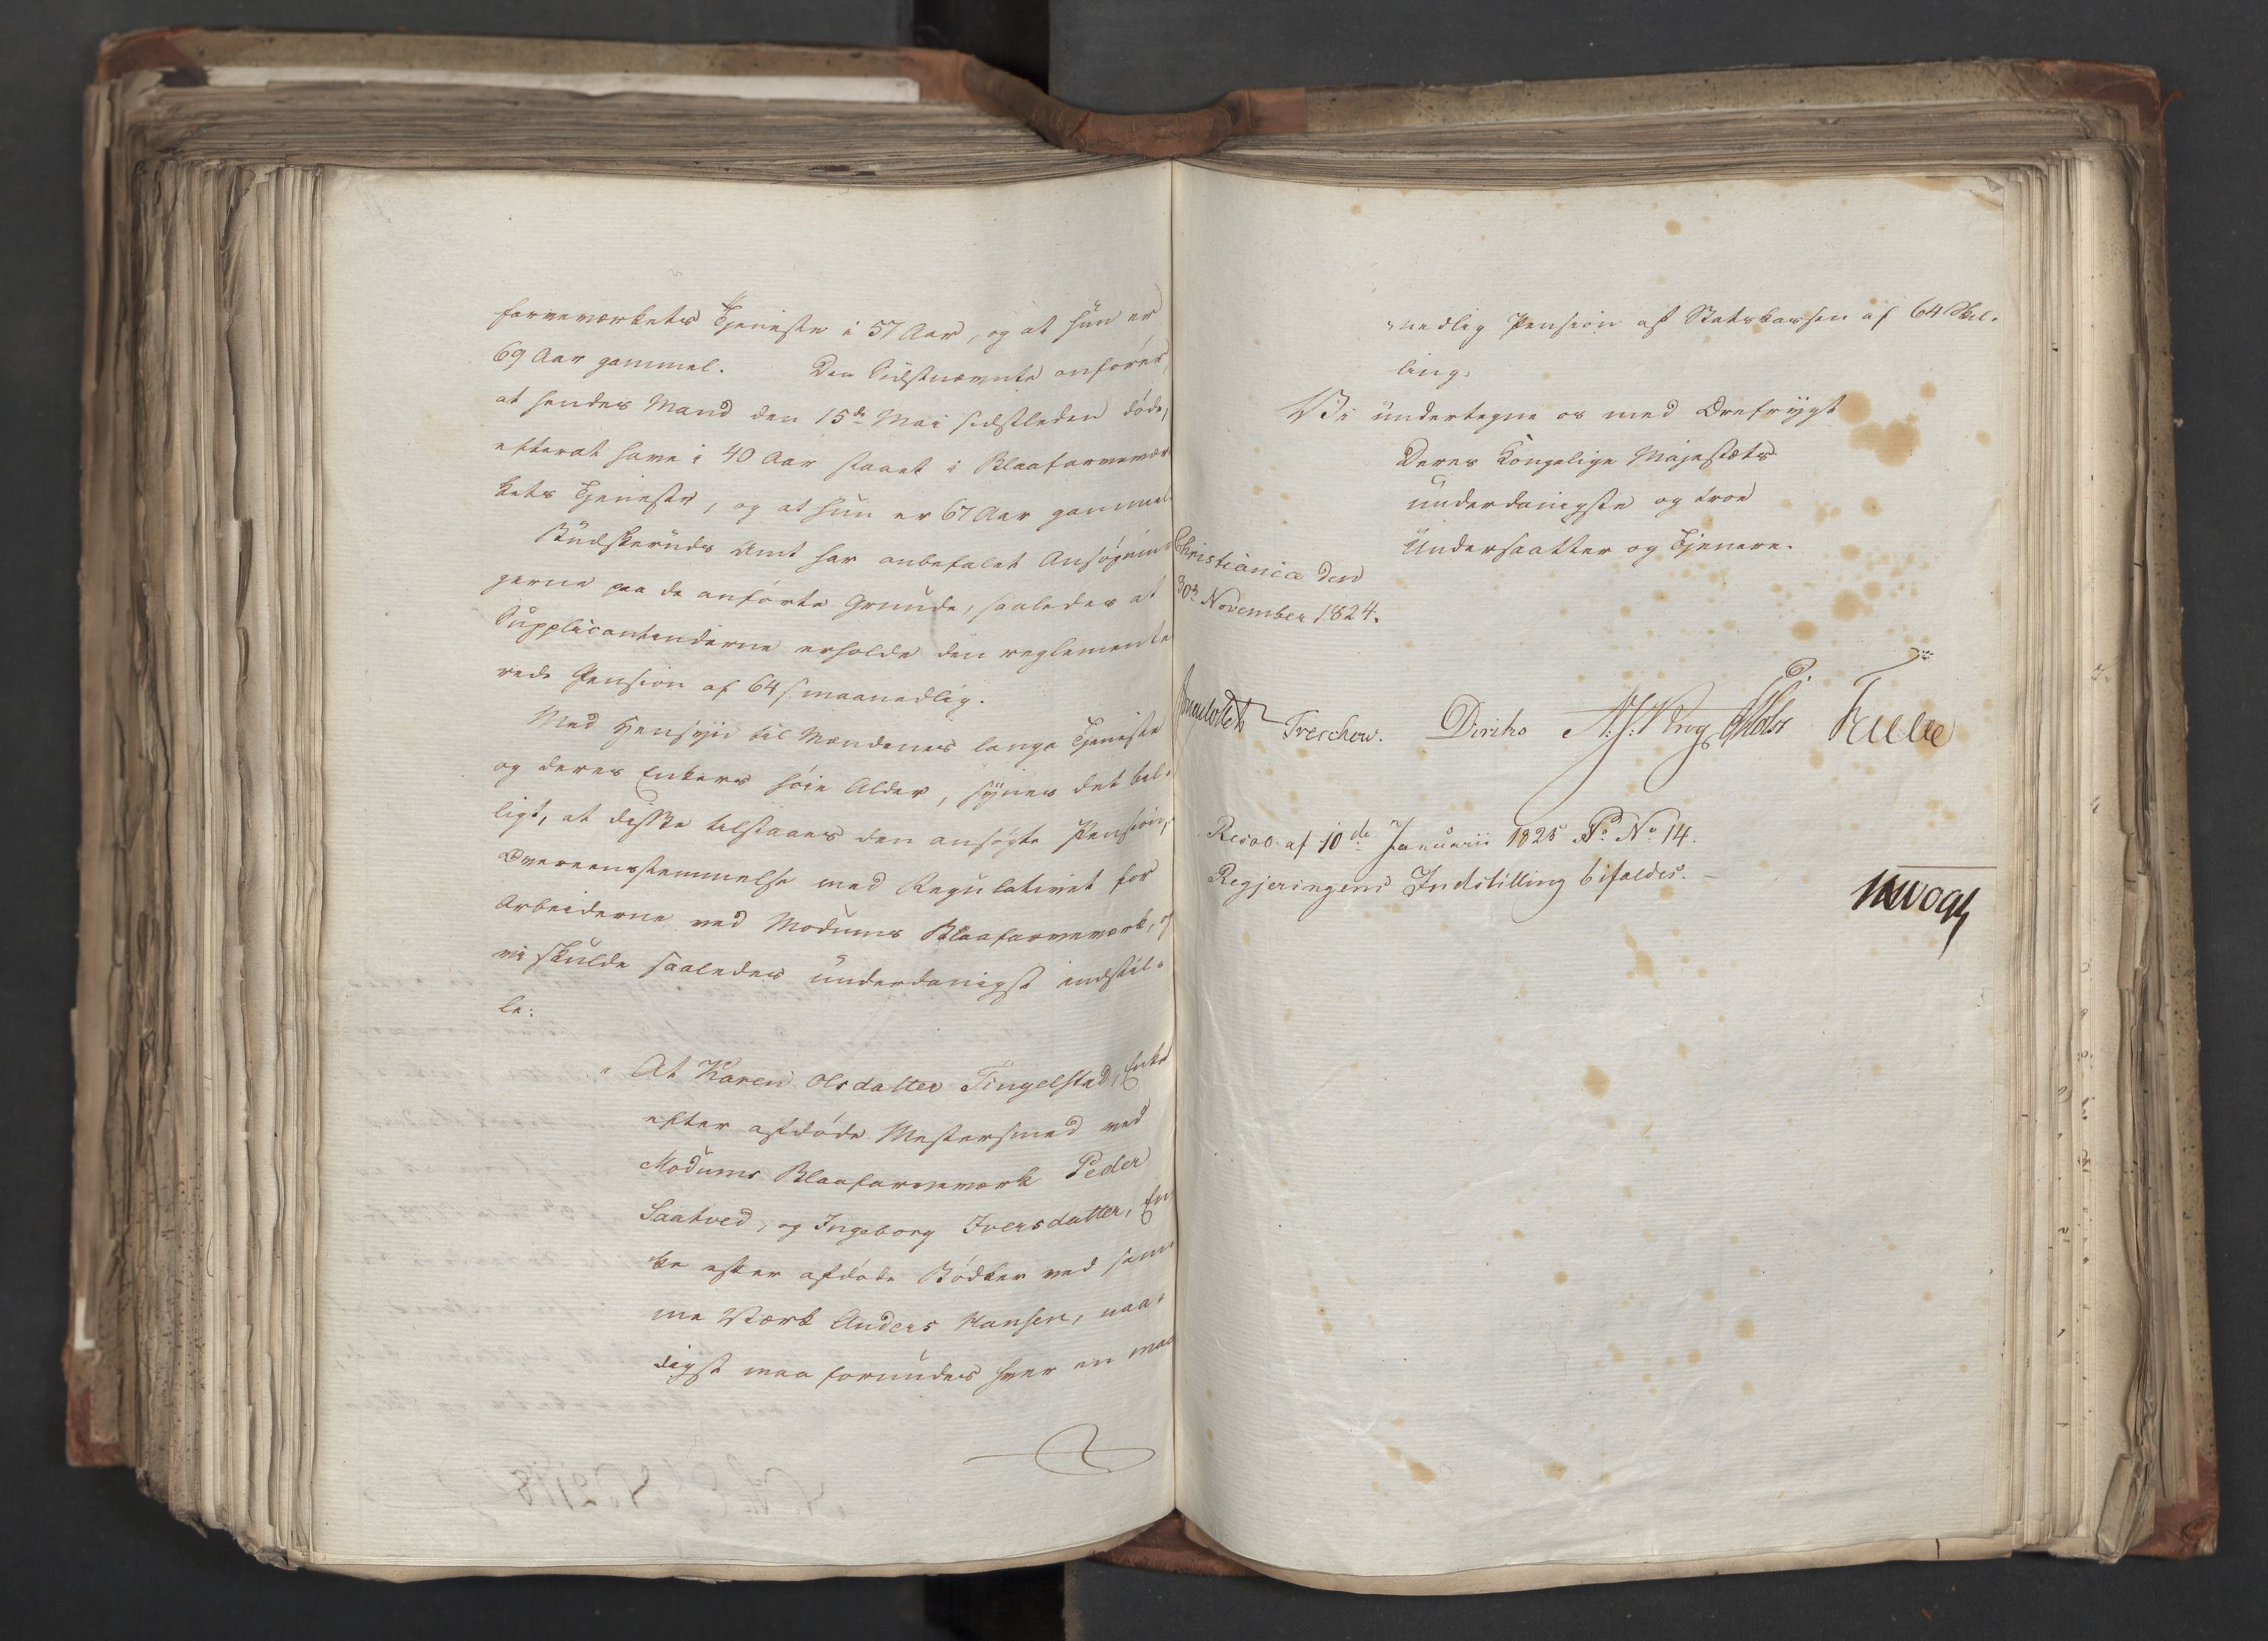 farveværkets Tjeneste i 57 Aar, og at hun er
69 Aar gammel. Den Sidstnævnte anfører,
at hendes Mand den 15de Mai sidstleden døde,
efterat have i 40 Aar staaet i Blaafarvevær
kets Tjeneste, og at hun er 67 Aar gammel
Budskeruds Amt har anbefalet Ansøgnin-
gerne paa de anførte Grunde, saaledes at
Supplicantinderne erholde den reglemente
rede Pension af 64 s maanedlig.
Med Hensyn til Mændenes lange Tjeneste
og deres Enkers høie Alder, synes det bil-
ligt, at disse tilstaaes den ansøgte Pension,
Overeensstemmelse med Regulativet for
Arbeiderne ved Modums Blaafarveværk, og
vi skulde saaledes underdanigst indstil-
le:
" At Karen Olsdatter Tingelstad, Enke
efter afdøde Mestersmed ved
Modums Blaafarveværk Peder
Saatved, og Ingeborg Iversdatter, En
ke efter afdøde Bødker ved sam
me Værk Anders Hansen, naa-
digst maa forundes hver en maa
nedlig Pension af Statskassen af 64 Skil-
ling.
Vi undertegne os med Ærefrygt
Deres Kongelige Majestæts
underdanigste og troe
Undersaatter og Tjenere.
Christiania den
30te November 1824.
Treschow. Diriks
Resol. af 10de Januarii 1825 Pr. No 14.
Regjeringens Indstilling bifaldes.